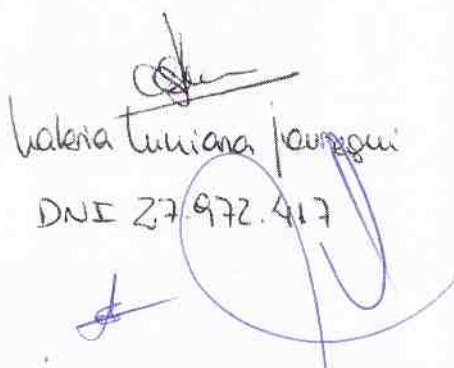 Valeria Luciana Jauregui
DNI 27.972.417